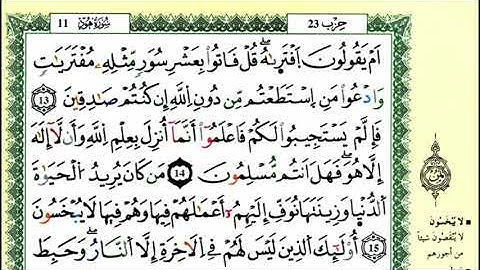 سُورَةُ هُود 11
حِزْب 23
أَمْ يَقُولُونَ اَفْتَرَىٰهُۖ قُلْ فَاتُوا بِعَشْرِ سُوَرٍ مِّثْلِهِۦ مُفْتَرَيَٰتٖ
وَادْعُوا مَنِ اِسْتَطَعْتُم مِّن دُونِ اِللَّهِ إِن كُنتُمْ صَٰدِقِينَ 13
فَإِلَّمْ يَسْتَجِيبُوا لَكُمْ فَاعْلَمُوا أَنَّمَا أُنزِلَ بِعِلْمِ اِللَّهِ وَأَن لَّا إِلَٰهَ
إِلَّا هُوَۖ فَهَلَ اَنتُم مُّسْلِمُونَ 14 مَن كَانَ يُرِيدُ الْحَيَوٰةَ
اَلدُّنْيَا وَزِينَتَهَا نُوَفِّ إِلَيْهِمُ أَعْمَٰلَهُمْ فِيهَا وَهُمْ فِيهَا لَا يُبْخَسُونَ
15 أُوْلَٰئِكَ اَلذِينَ لَيْسَ لَهُمْ فِي اِلَاخِرَةِ إِلَّا اَلنَّارُۖ وَحَبِطَ
لا يُبْخَسُونَ
لا يُنْقَصُونَ شيئاً
من أجورهم